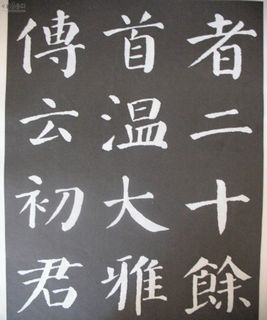 者二十餘
首温大雅
傳云初君